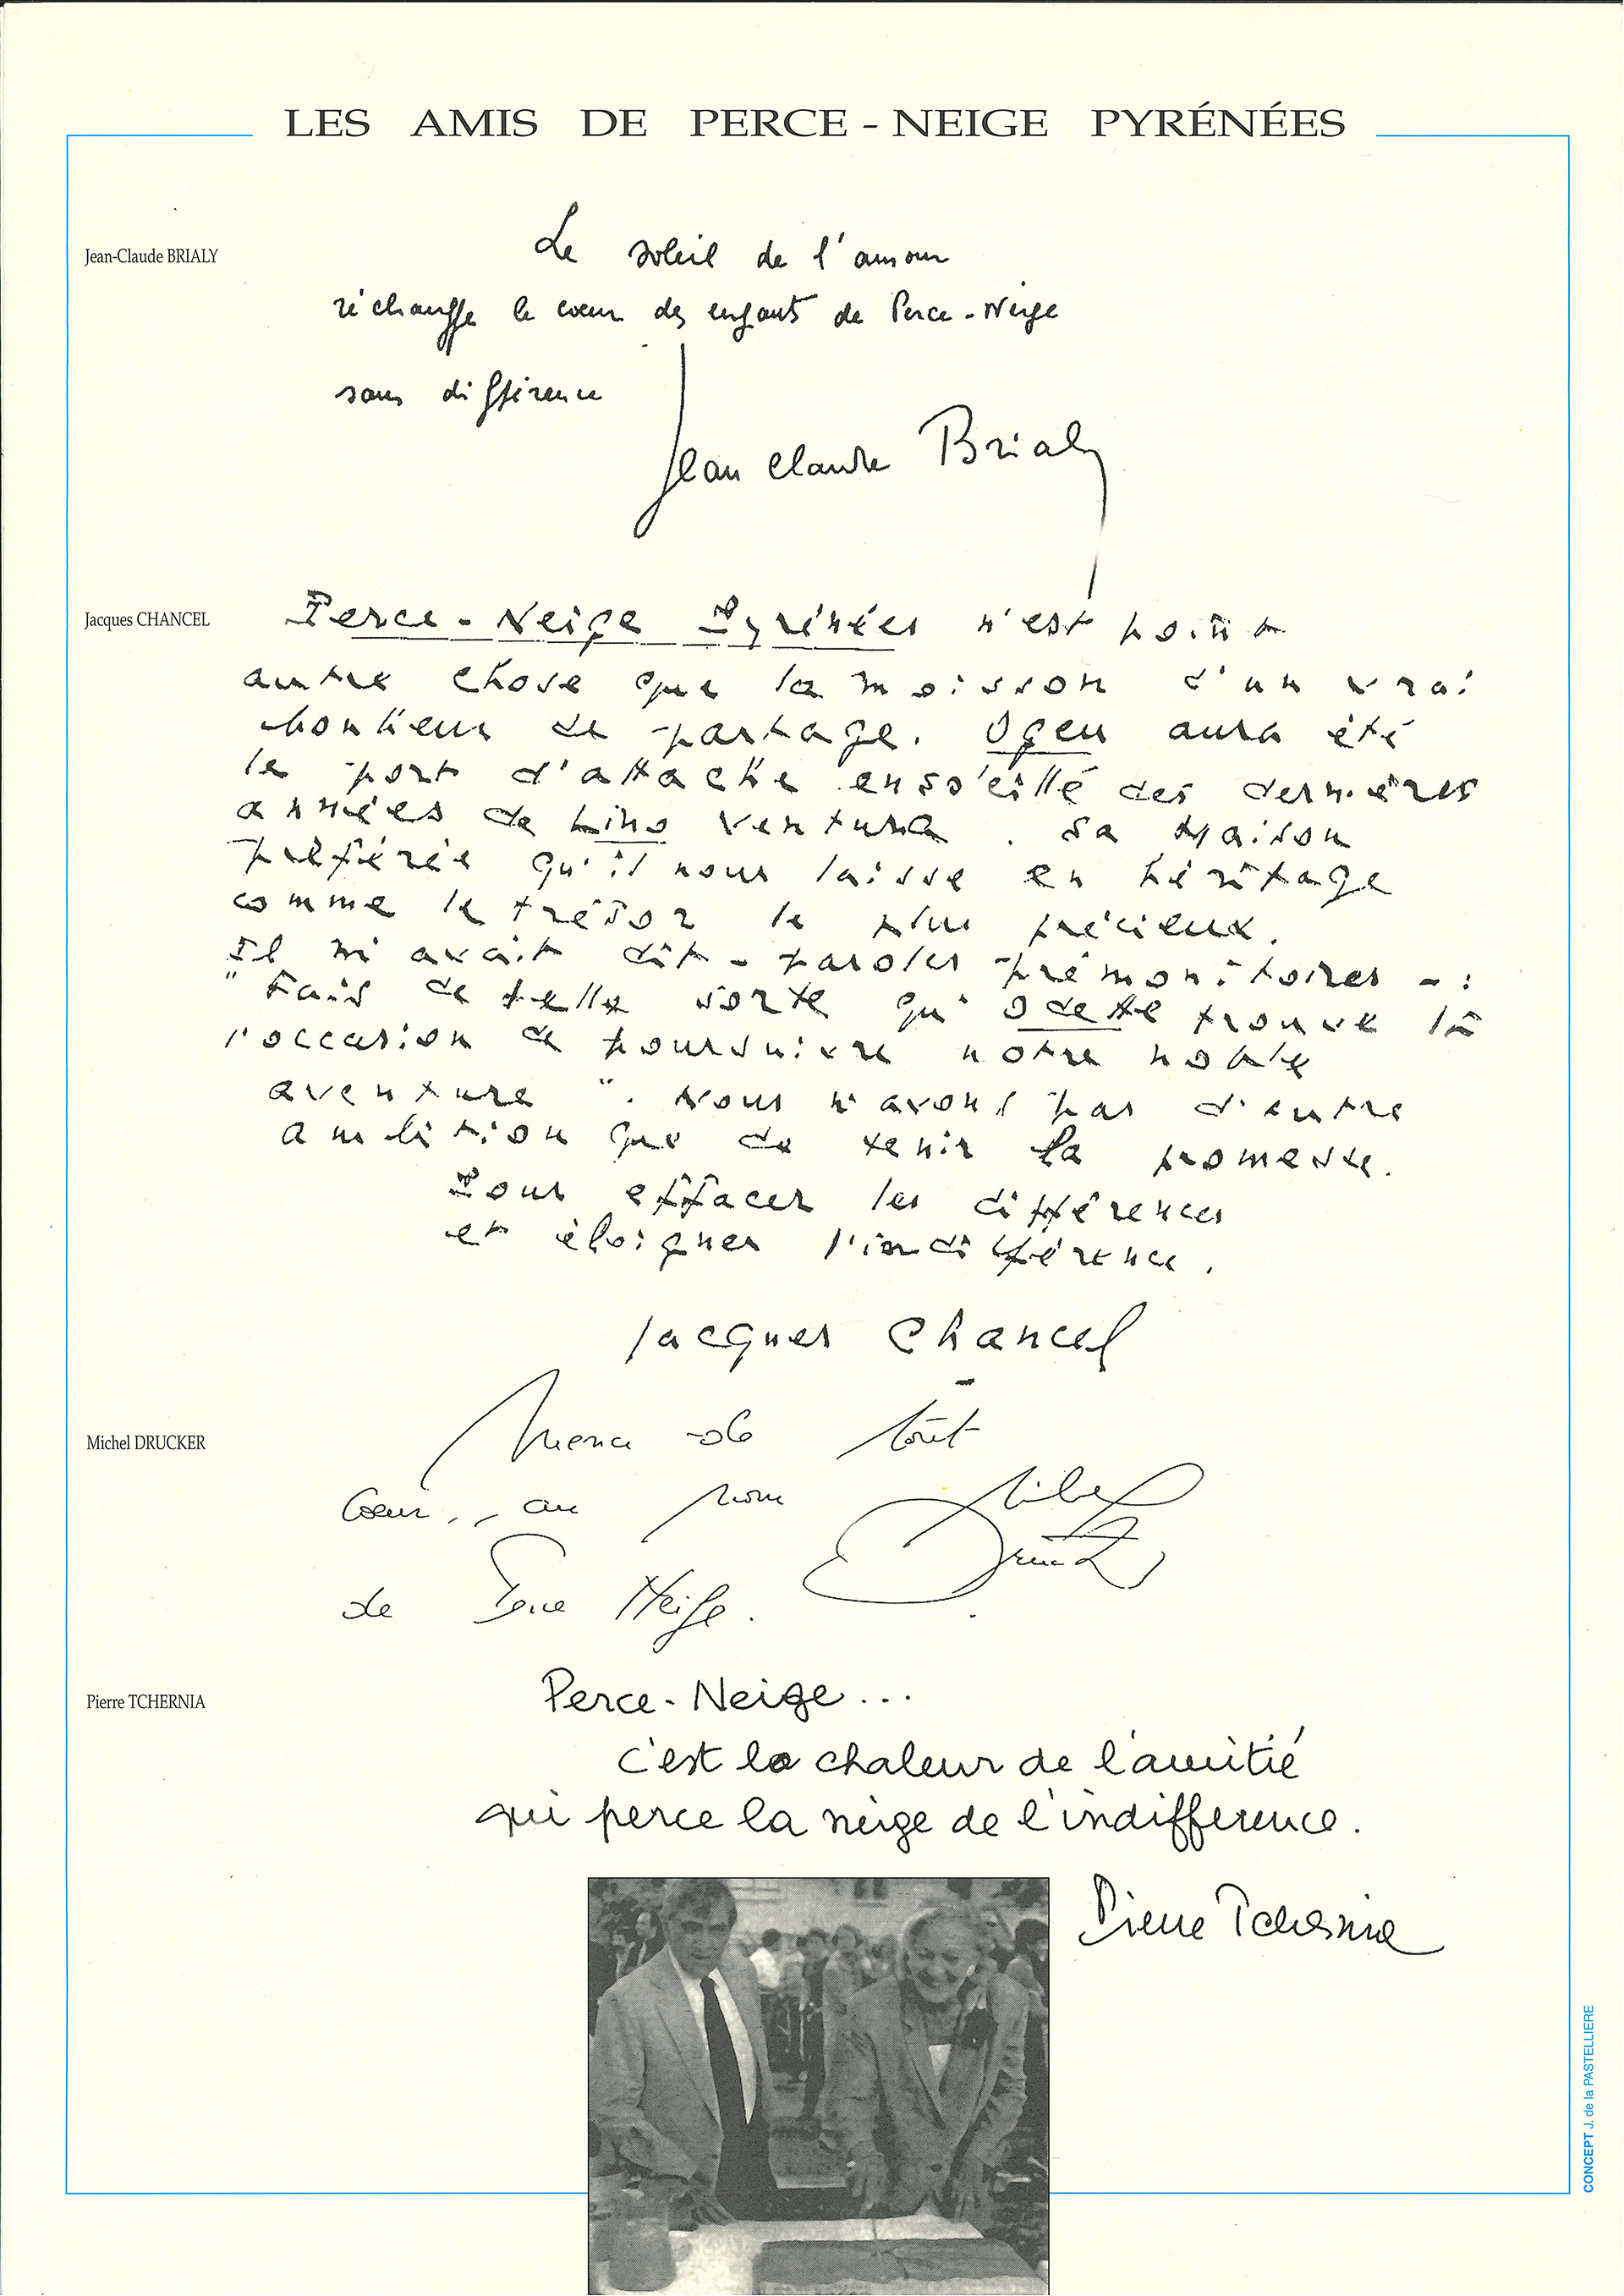 LES AMIS DE PERCE - NEIGE PYRÉNÉES
Jean-Claude BRIALY
Le soleil de l'amour
réchauffe le cœur des enfants de Perce-Neige
sans différence
Jean Claude Brialy
Jacques CHANCEL
Perce-Neige Pyrénées n'est point
autre chose que la moisson d'un vrai
bonheur de partage. Ogeu aura été
le port d'attache ensoleillé des dernières
années de Lino Ventura. Sa Maison
préférée qu'il nous laisse en héritage
comme le trésor le plus précieux.
Il m'avait dit - paroles prémonitoires - :
"Fais de telle sorte qu'Odette trouve là
l'occasion de poursuivre notre noble
aventure". Nous n'avons pas d'autre
ambition que de tenir la promesse.
Pour effacer les différences
et éloigner l'indifférence.
Jacques Chancel
Michel DRUCKER
Merci de tout
Cœur, au nom
de Perce Neige.
Michel
Drucker
Pierre TCHERNIA
Perce-Neige...
c'est la chaleur de l'amitié
qui perce la neige de l'indifference.
Pierre Tchernia
CONCEPT J. de la PASTELLIERE